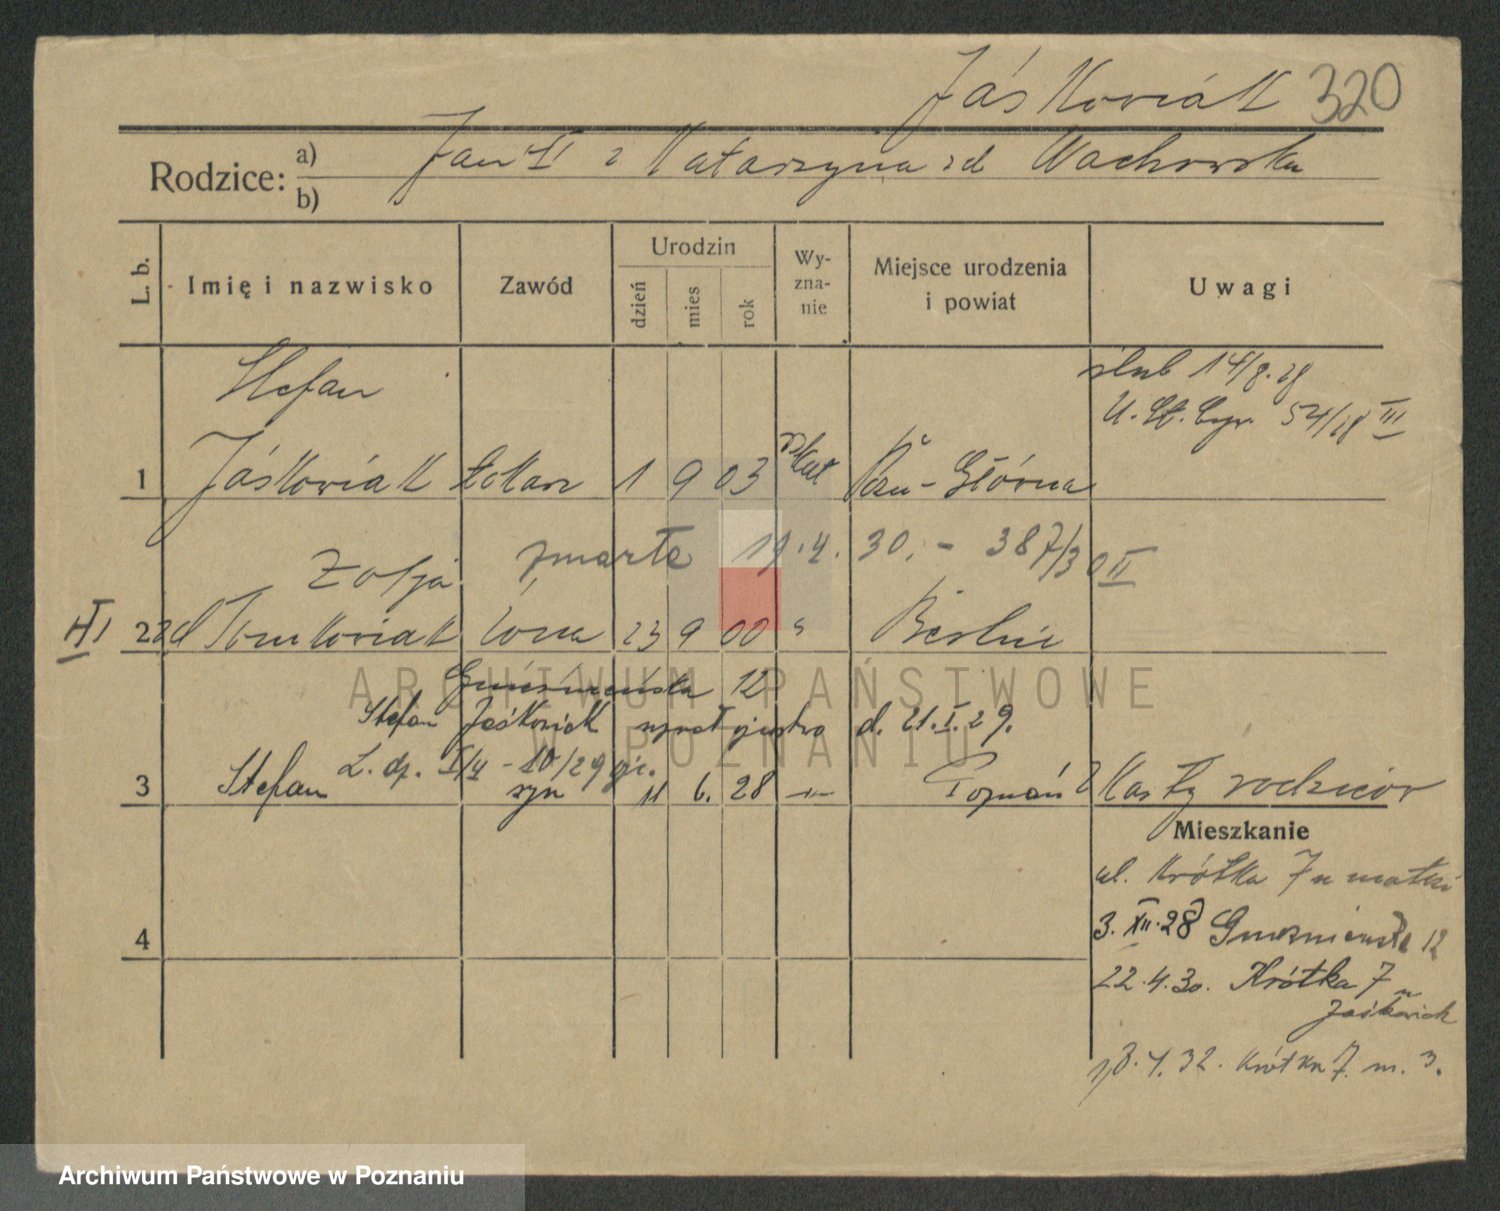 Jáskowiak 320
Rodzice: a) Jan II z Katarzyna zd Wachowska
b)
L. b. Imię i nazwisko Zawód Urodzin dzień mies rok Wy-zna-nie Miejsce urodzenia i powiat Uwagi
Stefan ślub 14/8.28
U. St. Cyw. 54/28 III
1 Jáskowiak tokarz 1 9 03 rkat Pozn - Główna
Zofja zmarła 19.4.30. - 387/30 II
2 zd Tomkowiak żona 23 9 00 " Berlin
Gnieźnieńska 12
Stefan Jaśkowiak d. 21.I.29.
L. dz. - 10/29
3 Stefan syn 11 6. 28 -"- Poznań z Karty rodziców
Mieszkanie
ul. Krótka 7 u matki
4 3. XII.28 Gnieźnieńska 12
22.4.30. Krótka 7
u Jaśkowiak
18.4.32. Krótka 7. m. 3.
ARCHIWUM PAŃSTWOWE
W POZNANIU
Archiwum Państwowe w Poznaniu